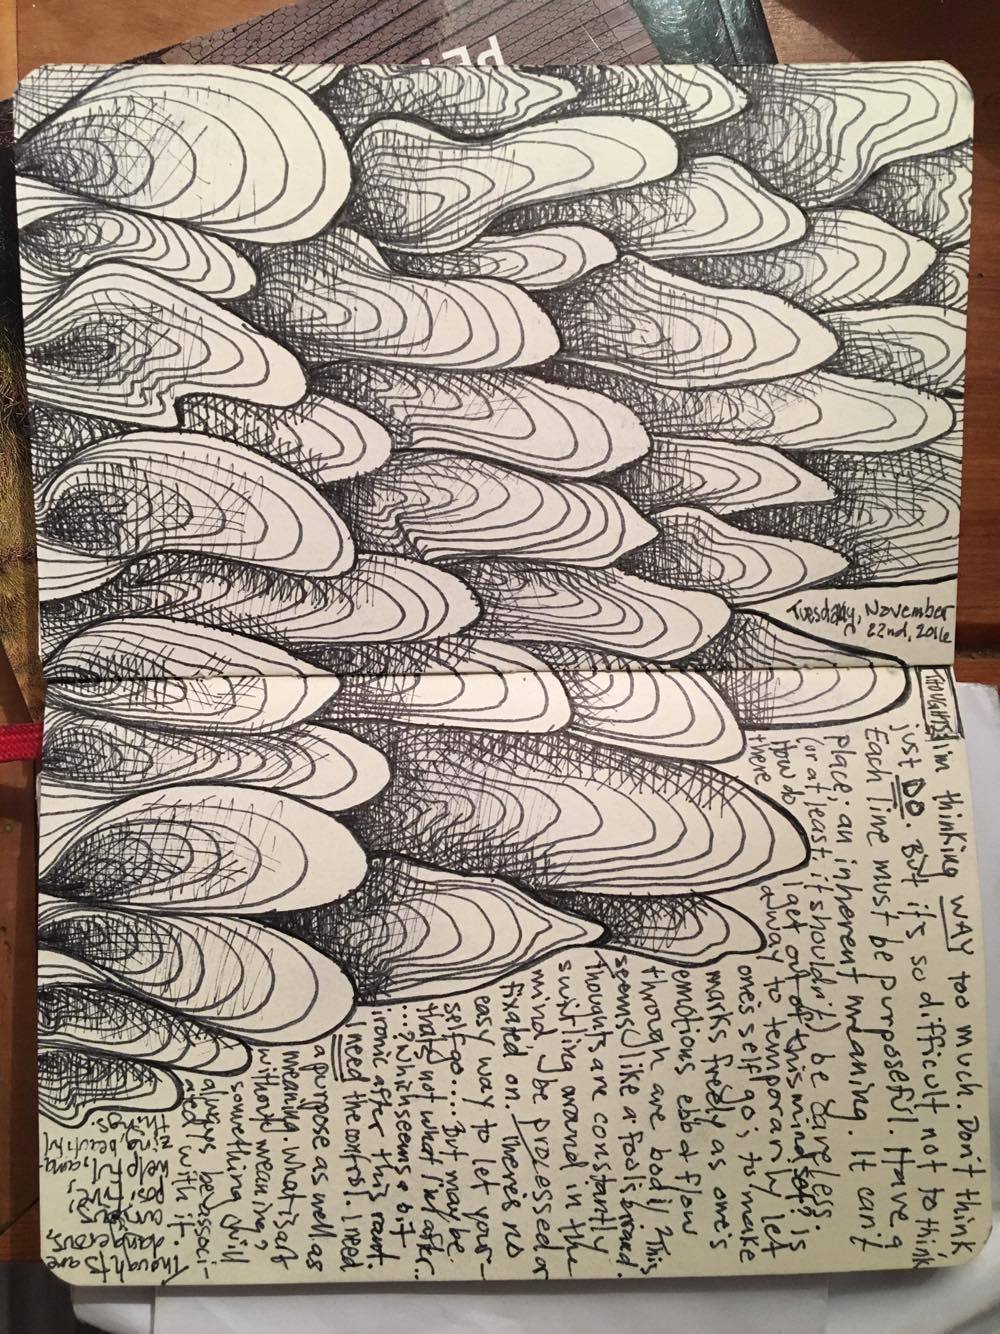 PE
Tuesday, November
22nd, 2016
Thoughts
I'm thinking WAY too much. Don't think
just DO. But it's so difficult not to think
Each line must be purposeful. Have a
place; an inherent meaning. It can't
(or at least it shouldn't) be careless.
How do I get out of this mindset? Is
there a way to temporarily let
one's self go; to make
marks freely as one's
emotions ebb & flow
through are body? This
seems like a fools errand.
Thoughts are constantly
swirling around in the
mind be processed or
fixated on. There's no
easy way to let your-
self go.... But maybe
that's not what I'm after..
...? Which seems a bit
ironic after this rant.
I need the control. I need
a purpose as well as
meaning. What is art
without meaning?
something will
always be associ-
ated with it.
Thoughts are
dangerous,
curious,
positive,
helpful, ama-
zing, beautiful
things.